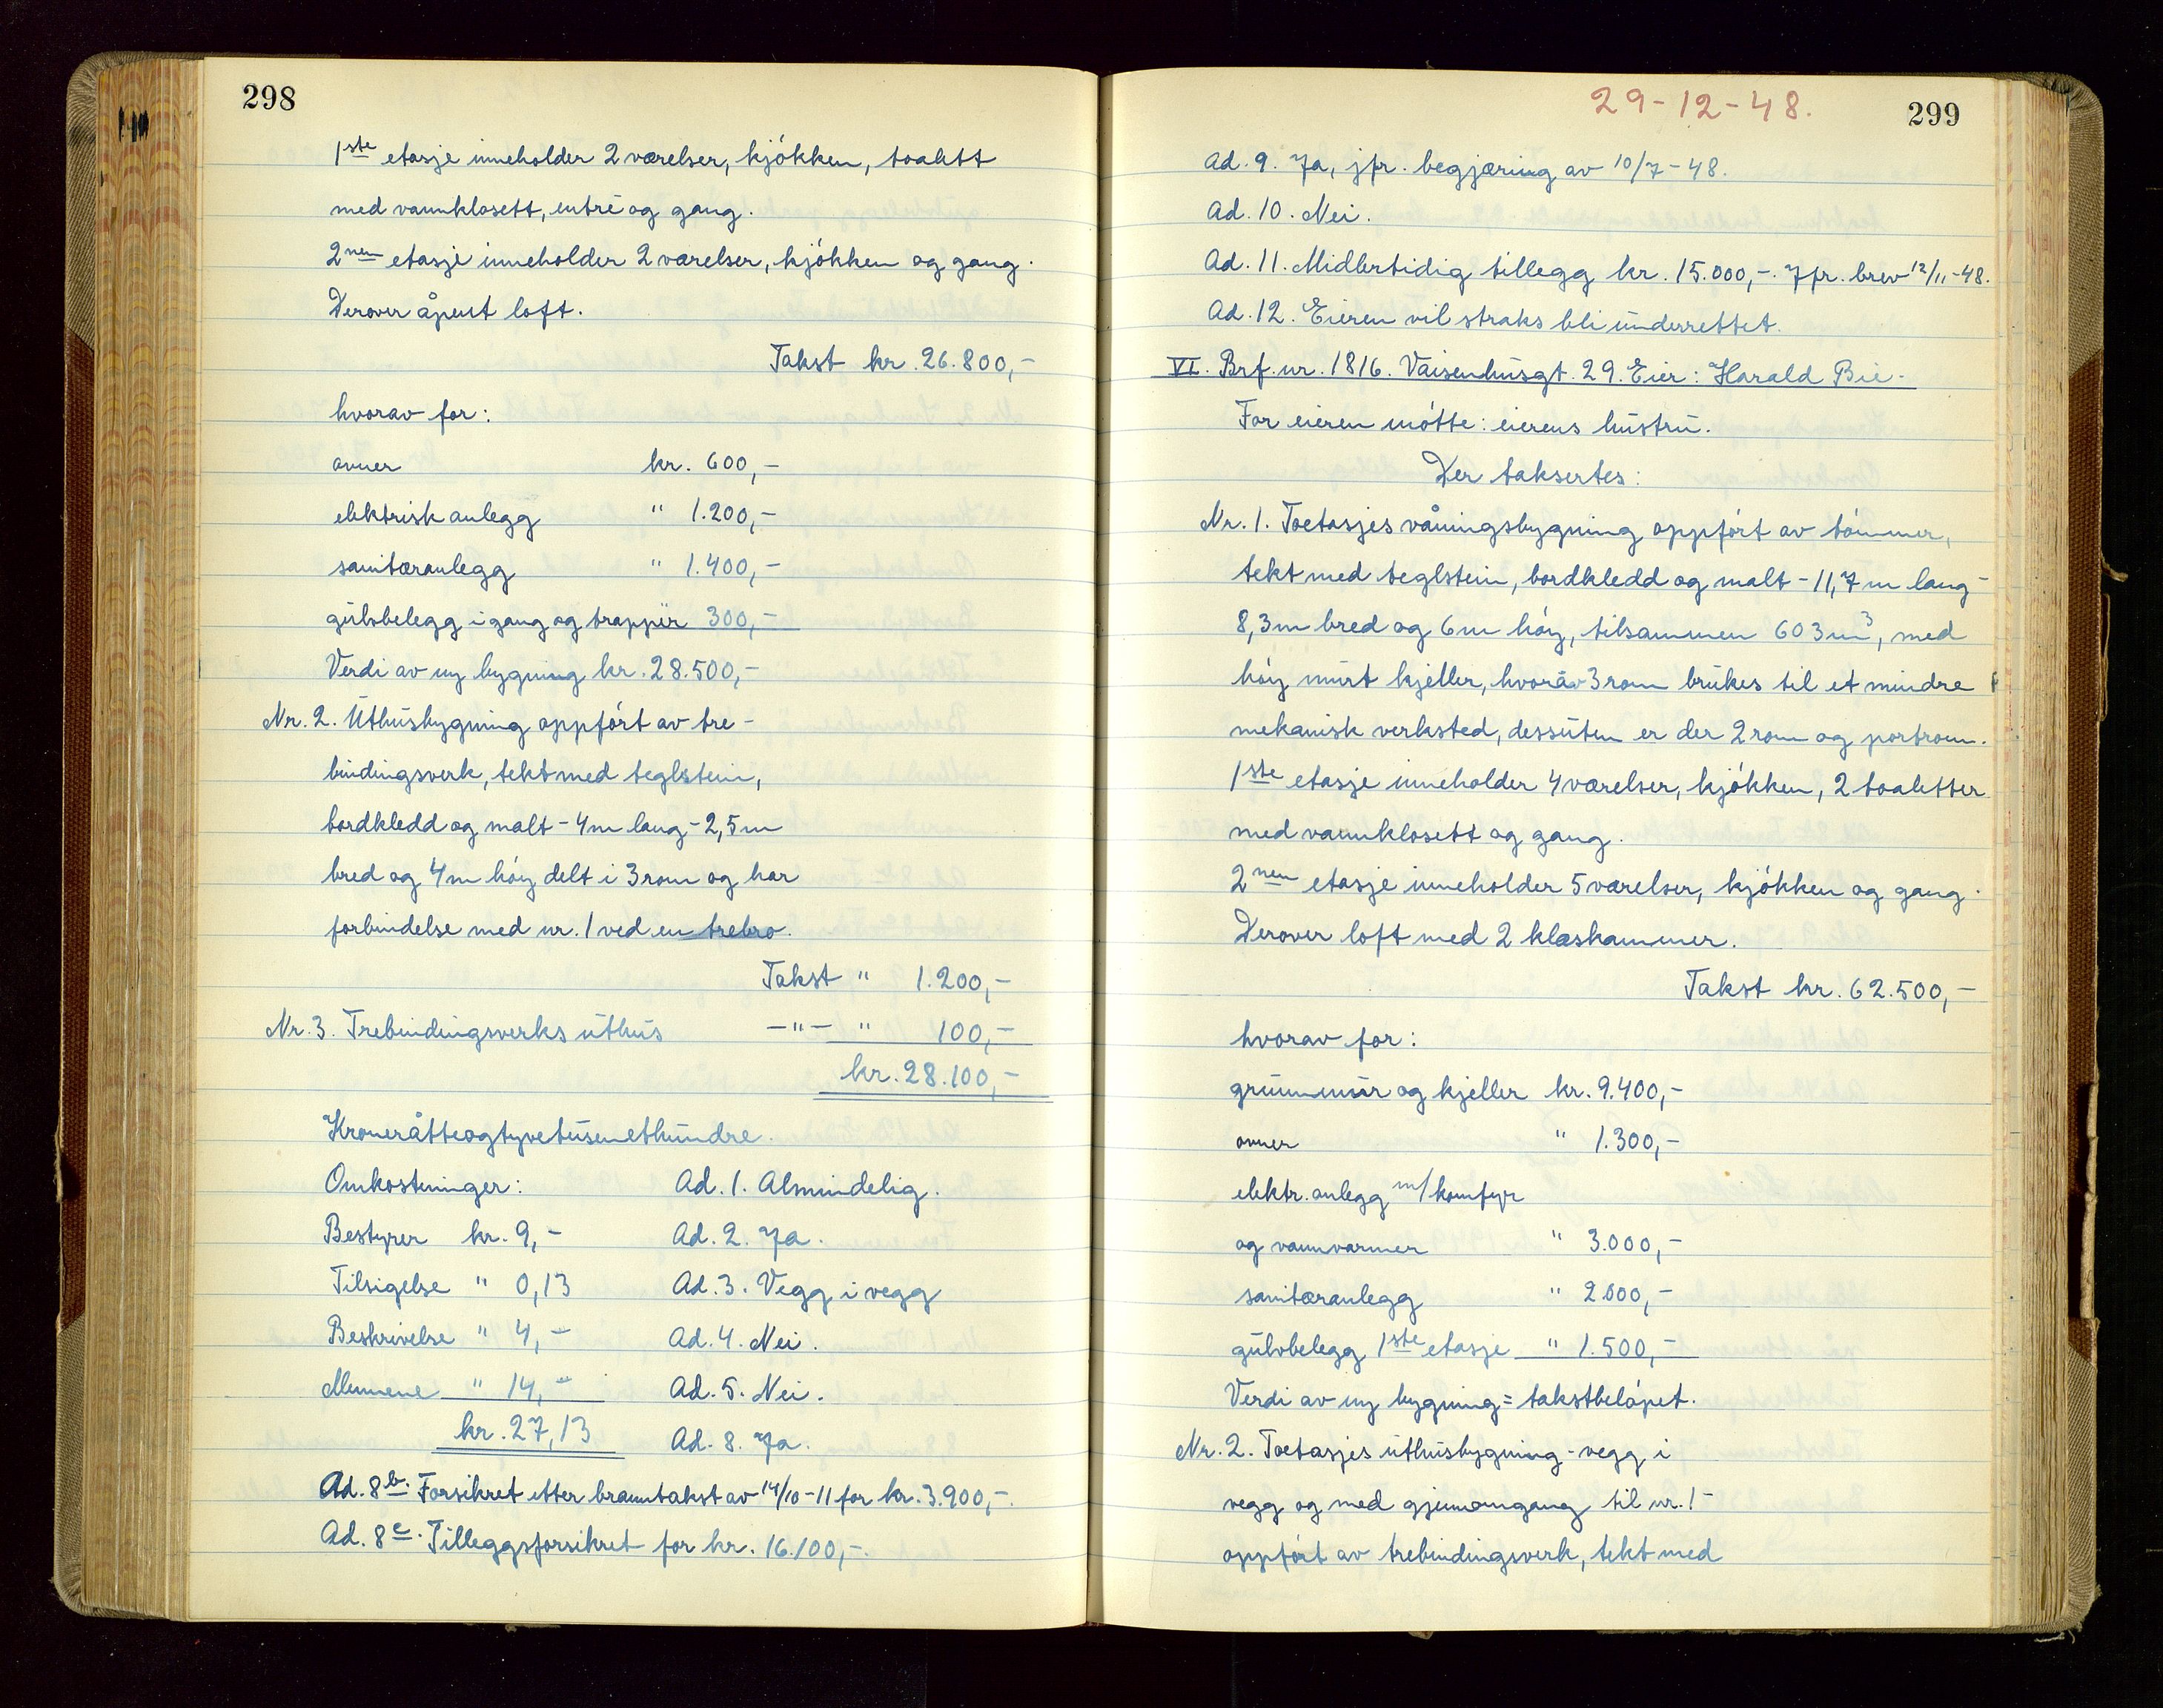 298
1ste etasje inneholder 2 værelser, kjökken, toalett
med vannklosett, entré og gang.
2nen etasje inneholder 2 værelser, kjökken og gang.
Derover åpent loft.
Takst kr. 26.800,-
hvorav for:
ovner kr. 600,-
elektrisk anlegg " 1.200,-
sanitæranlegg " 1.400,-
gulvbelegg i gang og trapper 300,-
Verdi av ny bygning kr. 28.500,-
Nr. 2. Uthusbygning oppfört av tre-
bindingsverk, tekt med teglstein,
bordkledd og malt - 4 m lang - 2,5 m
bred og 4 m höy delt i 3 rom og har
forbindelse med nr. 1 ved en trebro.
Takst " 1.200,-
Nr. 3. Trebindingsverks uthus -"- " 100,-
kr. 28.100,-
Kroneråtteogtyvetusenethundre.
Omkostninger: Ad. 1. Almindelig.
Bestyrer kr. 9,- Ad. 2. Ja.
Tilsigelse " 0,13 Ad. 3. Vegg i vegg
Beskrivelse " 4,- Ad. 4. Nei.
Mennene " 14,- Ad. 5. Nei.
kr. 27,13 Ad. 8. Ja.
Ad. 8b. Forsikret etter branntakst av 14/10-11 for kr. 3.900,-.
Ad. 8c. Tilleggsforsikret for kr. 16.100,-.
29-12-48.
299
Ad. 9. Ja, jfr. begjæring av 10/7-48.
Ad. 10. Nei.
Ad. 11. Midlertidig tillegg kr. 15.000,-. Jfr. brev 12/11-48.
Ad. 12. Eieren vil straks bli underrettet.
VI. Brf. nr. 1816. Vaisenhusgt. 29. Eier: Harald Bie.
For eieren mötte: eierens hustru.
Der taksertes:
Nr. 1. Toetasjes våningsbygning oppfört av tömmer,
tekt med teglstein, bordkledd og malt - 11,7 m lang -
8,3 m bred og 6 m höy, tilsammen 603 m3, med
höy murt kjeller, hvorav 3 rom brukes til et mindre
mekanisk verksted, dessuten er der 2 rom og portrom.
1ste etasje inneholder 4 værelser, kjökken, 2 toaletter
med vannklosett og gang.
2nen etasje inneholder 5 værelser, kjökken og gang.
Derover loft med 2 klæskammer.
Takst kr. 62.500,-
hvorav for:
grunnmur og kjeller kr. 9.400,-
ovner " 1.300,-
elektr. anlegg m/komfyr
og vannvarmer " 3.000,-
sanitæranlegg " 2.000,-
gulvbelegg 1ste etasje " 1.500,-
Verdi av ny bygning = takstbelöpet.
Nr. 2. Toetasjes uthusbygning - vegg i
vegg og med gjennomgang til nr. 1 -
oppfört av trebindingsverk, tekt med